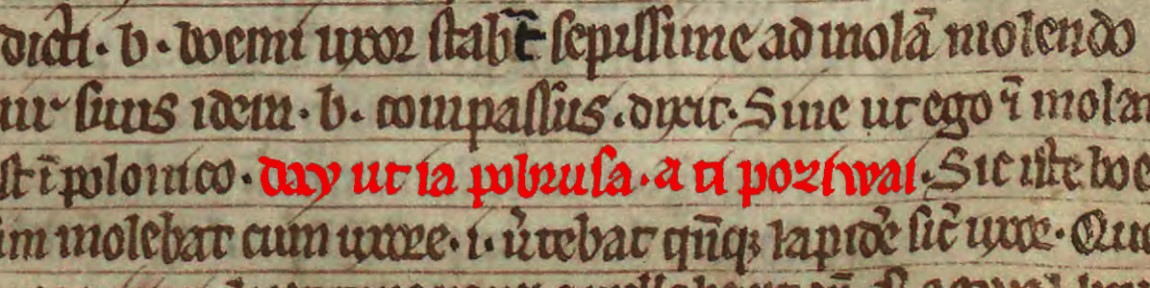 dicti. b. boemi uxor stabat sepissime ad molã molendo
ur suus idem. b. compassus. dixit. Sine ut ego ĩ mola
st ĩ polonico. day ut ia pobrusa. a ti poziwai. Sic iste boe
im molebat cum uxore. i. vtebat qñq; lapidẽ sic̃ uxor. Que